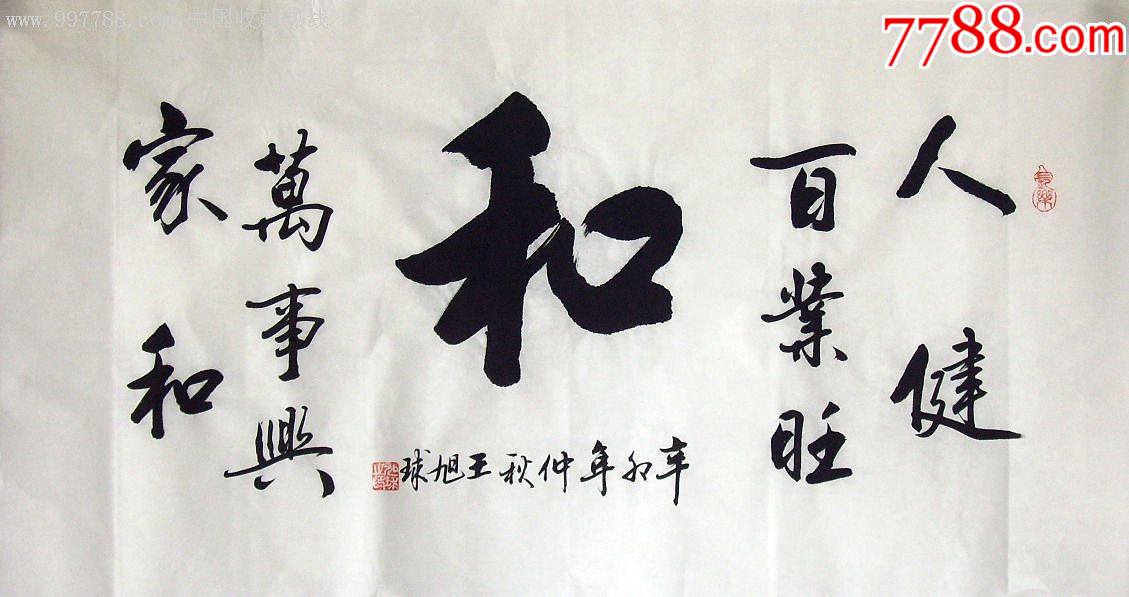 www.997788.com
7788.com
人健
百業旺
和
萬事興
家和
辛卯年仲秋王旭球